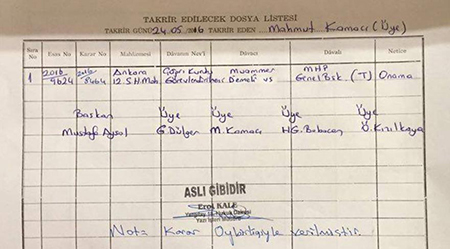 TAKRİR EDİLECEK DOSYA LİSTESİ
TAKRİR GÜNÜ 24.05.2016 TAKRİR EDEN Mahmut Kamacı (Üye)
Sıra No Esas No Karar No Mahkemesi Davanın Nev'i Davacı Davalı Netice
1 2016/5624 2016/ Ankara 12.S.H.Mah Çağrı Kurulu Görevlendirilmesi Muammer Demeli vs MHP Genel Bşk. (T) Onama
Başkan Üye Üye Üye Üye
Mustafa Aysal G.Dülger M.Kamacı HG.Babacan Ö.Kızılkaya
ASLI GİBİDİR
Erol KALE
Yargıtay 18. Hukuk Dairesi
Yazı İşleri Müdürü
Not: Karar Oybirliğiyle verilmiştir.